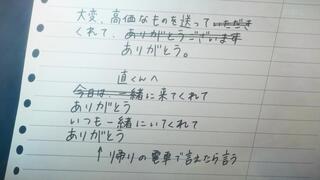 大変、高価なものを送っていただき
くれて、ありがとうございます
ありがとう。
直くんへ
今日は、一緒に来てくれて
ありがとう
いつも一緒にいてくれて
ありがとう
↑帰りの電車で言えたら言う